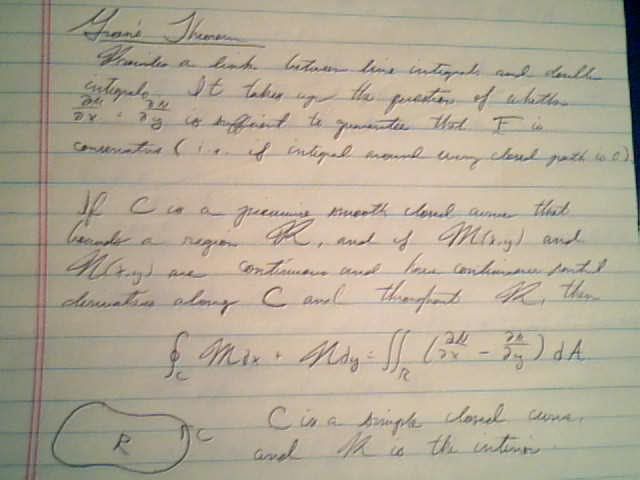 Green's Theorem
Provides a link between line integrals and double
integrals. It takes up the question of whether
∂N/∂x = ∂M/∂y is sufficient to guarantee that F is
conservative (i.e. if integral around every closed path is 0).
If C is a piecewise smooth closed curve that
bounds a region R, and if M(x,y) and
N(x,y) are continuous and have continuous partial
derivatives along C and throughout R, then
∮_C Mdx + Ndy = ∬_R (∂N/∂x - ∂M/∂y) dA
R C C is a simple closed curve,
and R is the interior.